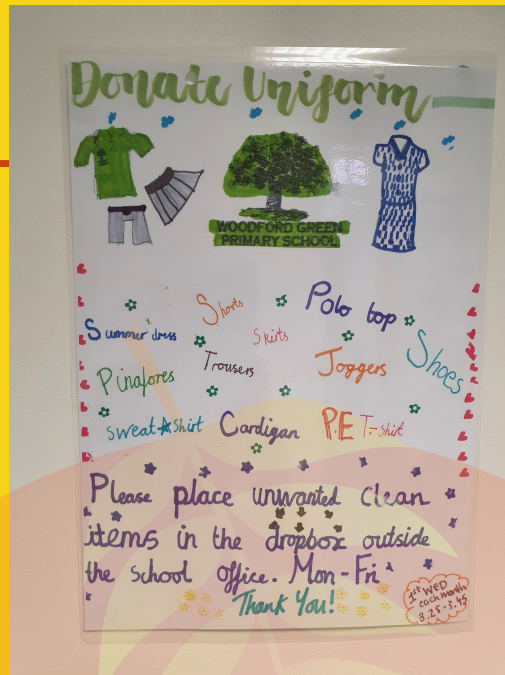 Donate Uniform
WOODFORD GREEN
PRIMARY SCHOOL
Shorts
Polo top
Summer dress
Skirts
Shoes
Pinafores
Trousers
Joggers
sweatshirt
Cardigan
P.E T-shirt
Please place unwanted clean
items in the dropbox outside
the school office. Mon-Fri
Thank You!
1st WED
each month
3.25-3.45